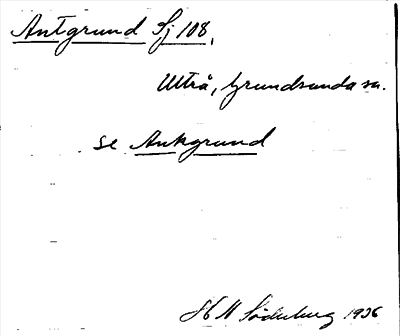 Antgrund Sj 108,
Ultrå, Grundsunda sn.
se Ankgrund
H N Söderburg 1936